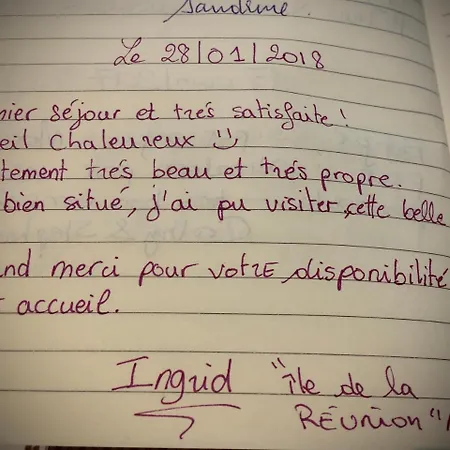 Sandrine.
Le 28/01/2018
nier séjour et trés satisfaite!
eil chaleureux
tement trés beau et trés propre.
bien situé, j'ai pu visiter cette belle
nd merci pour votre disponibilité
accueil.
Ingrid "île de la
RÉUNION"